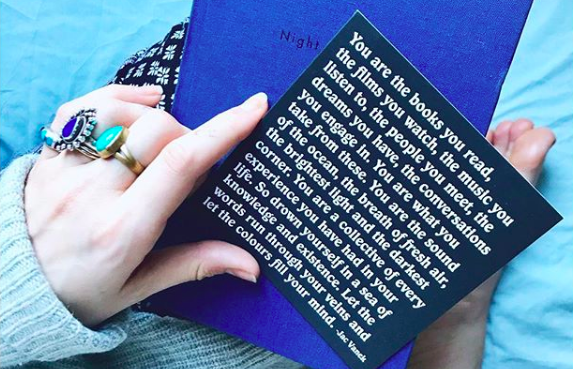 Night
You are the books you read,
the films you watch, the music you
listen to, the people you meet, the
dreams you have, the conversations
you engage in. You are what you
take from these. You are the sound
of the ocean, the breath of fresh air,
the brightest light and the darkest
corner. You are a collective of every
experience you have had in your
life. So drown yourself in a sea of
knowledge and existence. Let the
words run through your veins and
let the colours fill your mind. -Jac Vanek